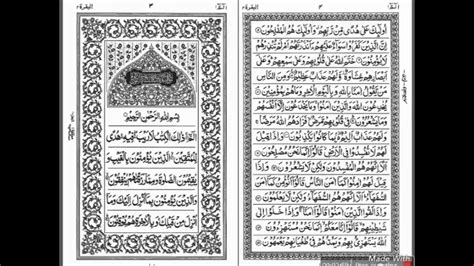 البقرة ٢
٣
الٓمّٓ ١
بِسْمِ اللّٰهِ الرَّحْمٰنِ الرَّحِيْمِ
الٓمّٓ ذٰلِكَ الْكِتٰبُ لَا رَيْبَ فِيْهِ هُدًى
لِّلْمُتَّقِيْنَ الَّذِيْنَ يُؤْمِنُوْنَ بِالْغَيْبِ وَ
يُقِيْمُوْنَ الصَّلٰوةَ وَمِمَّا رَزَقْنٰهُمْ يُنْفِقُوْنَ
وَالَّذِيْنَ يُؤْمِنُوْنَ بِمَآ اُنْزِلَ اِلَيْكَ وَمَآ
اُنْزِلَ مِنْ قَبْلِكَ وَبِالْاٰخِرَةِ هُمْ يُوْقِنُوْنَ
البقرة ٢
الٓمّٓ ١
اُولٰٓئِكَ عَلٰى هُدًى مِّنْ رَّبِّهِمْ وَاُولٰٓئِكَ هُمُ الْمُفْلِحُوْنَ
اِنَّ الَّذِيْنَ كَفَرُوْا سَوَآءٌ عَلَيْهِمْ ءَاَنْذَرْتَهُمْ اَمْ لَمْ تُنْذِرْهُمْ
لَا يُؤْمِنُوْنَ خَتَمَ اللّٰهُ عَلٰى قُلُوْبِهِمْ وَعَلٰى سَمْعِهِمْ وَعَلٰٓى
اَبْصَارِهِمْ غِشَاوَةٌ وَّلَهُمْ عَذَابٌ عَظِيْمٌ وَمِنَ النَّاسِ
مَنْ يَّقُوْلُ اٰمَنَّا بِاللّٰهِ وَبِالْيَوْمِ الْاٰخِرِ وَمَا هُمْ بِمُؤْمِنِيْنَ
يُخٰدِعُوْنَ اللّٰهَ وَالَّذِيْنَ اٰمَنُوْا وَمَا يَخْدَعُوْنَ اِلَّآ
اَنْفُسَهُمْ وَمَا يَشْعُرُوْنَ فِيْ قُلُوْبِهِمْ مَّرَضٌ فَزَادَهُمُ اللّٰهُ مَرَضًا
وَلَهُمْ عَذَابٌ اَلِيْمٌ بِمَا كَانُوْا يَكْذِبُوْنَ وَاِذَا قِيْلَ
لَهُمْ لَا تُفْسِدُوْا فِي الْاَرْضِ قَالُوْٓا اِنَّمَا نَحْنُ مُصْلِحُوْنَ
اَلَآ اِنَّهُمْ هُمُ الْمُفْسِدُوْنَ وَلٰكِنْ لَّا يَشْعُرُوْنَ وَاِذَا
قِيْلَ لَهُمْ اٰمِنُوْا كَمَآ اٰمَنَ النَّاسُ قَالُوْٓا اَنُؤْمِنُ كَمَآ اٰمَنَ
السُّفَهَآءُ اَلَآ اِنَّهُمْ هُمُ السُّفَهَآءُ وَلٰكِنْ لَّا يَعْلَمُوْنَ
وَاِذَا لَقُوا الَّذِيْنَ اٰمَنُوْا قَالُوْٓا اٰمَنَّا وَاِذَا خَلَوْا اِلٰى
شَيٰطِيْنِهِمْ قَالُوْٓا اِنَّا مَعَكُمْ اِنَّمَا نَحْنُ مُسْتَهْزِءُوْنَ
اَللّٰهُ يَسْتَهْزِئُ بِهِمْ وَيَمُدُّهُمْ فِيْ طُغْيَانِهِمْ يَعْمَهُوْنَ
Made With